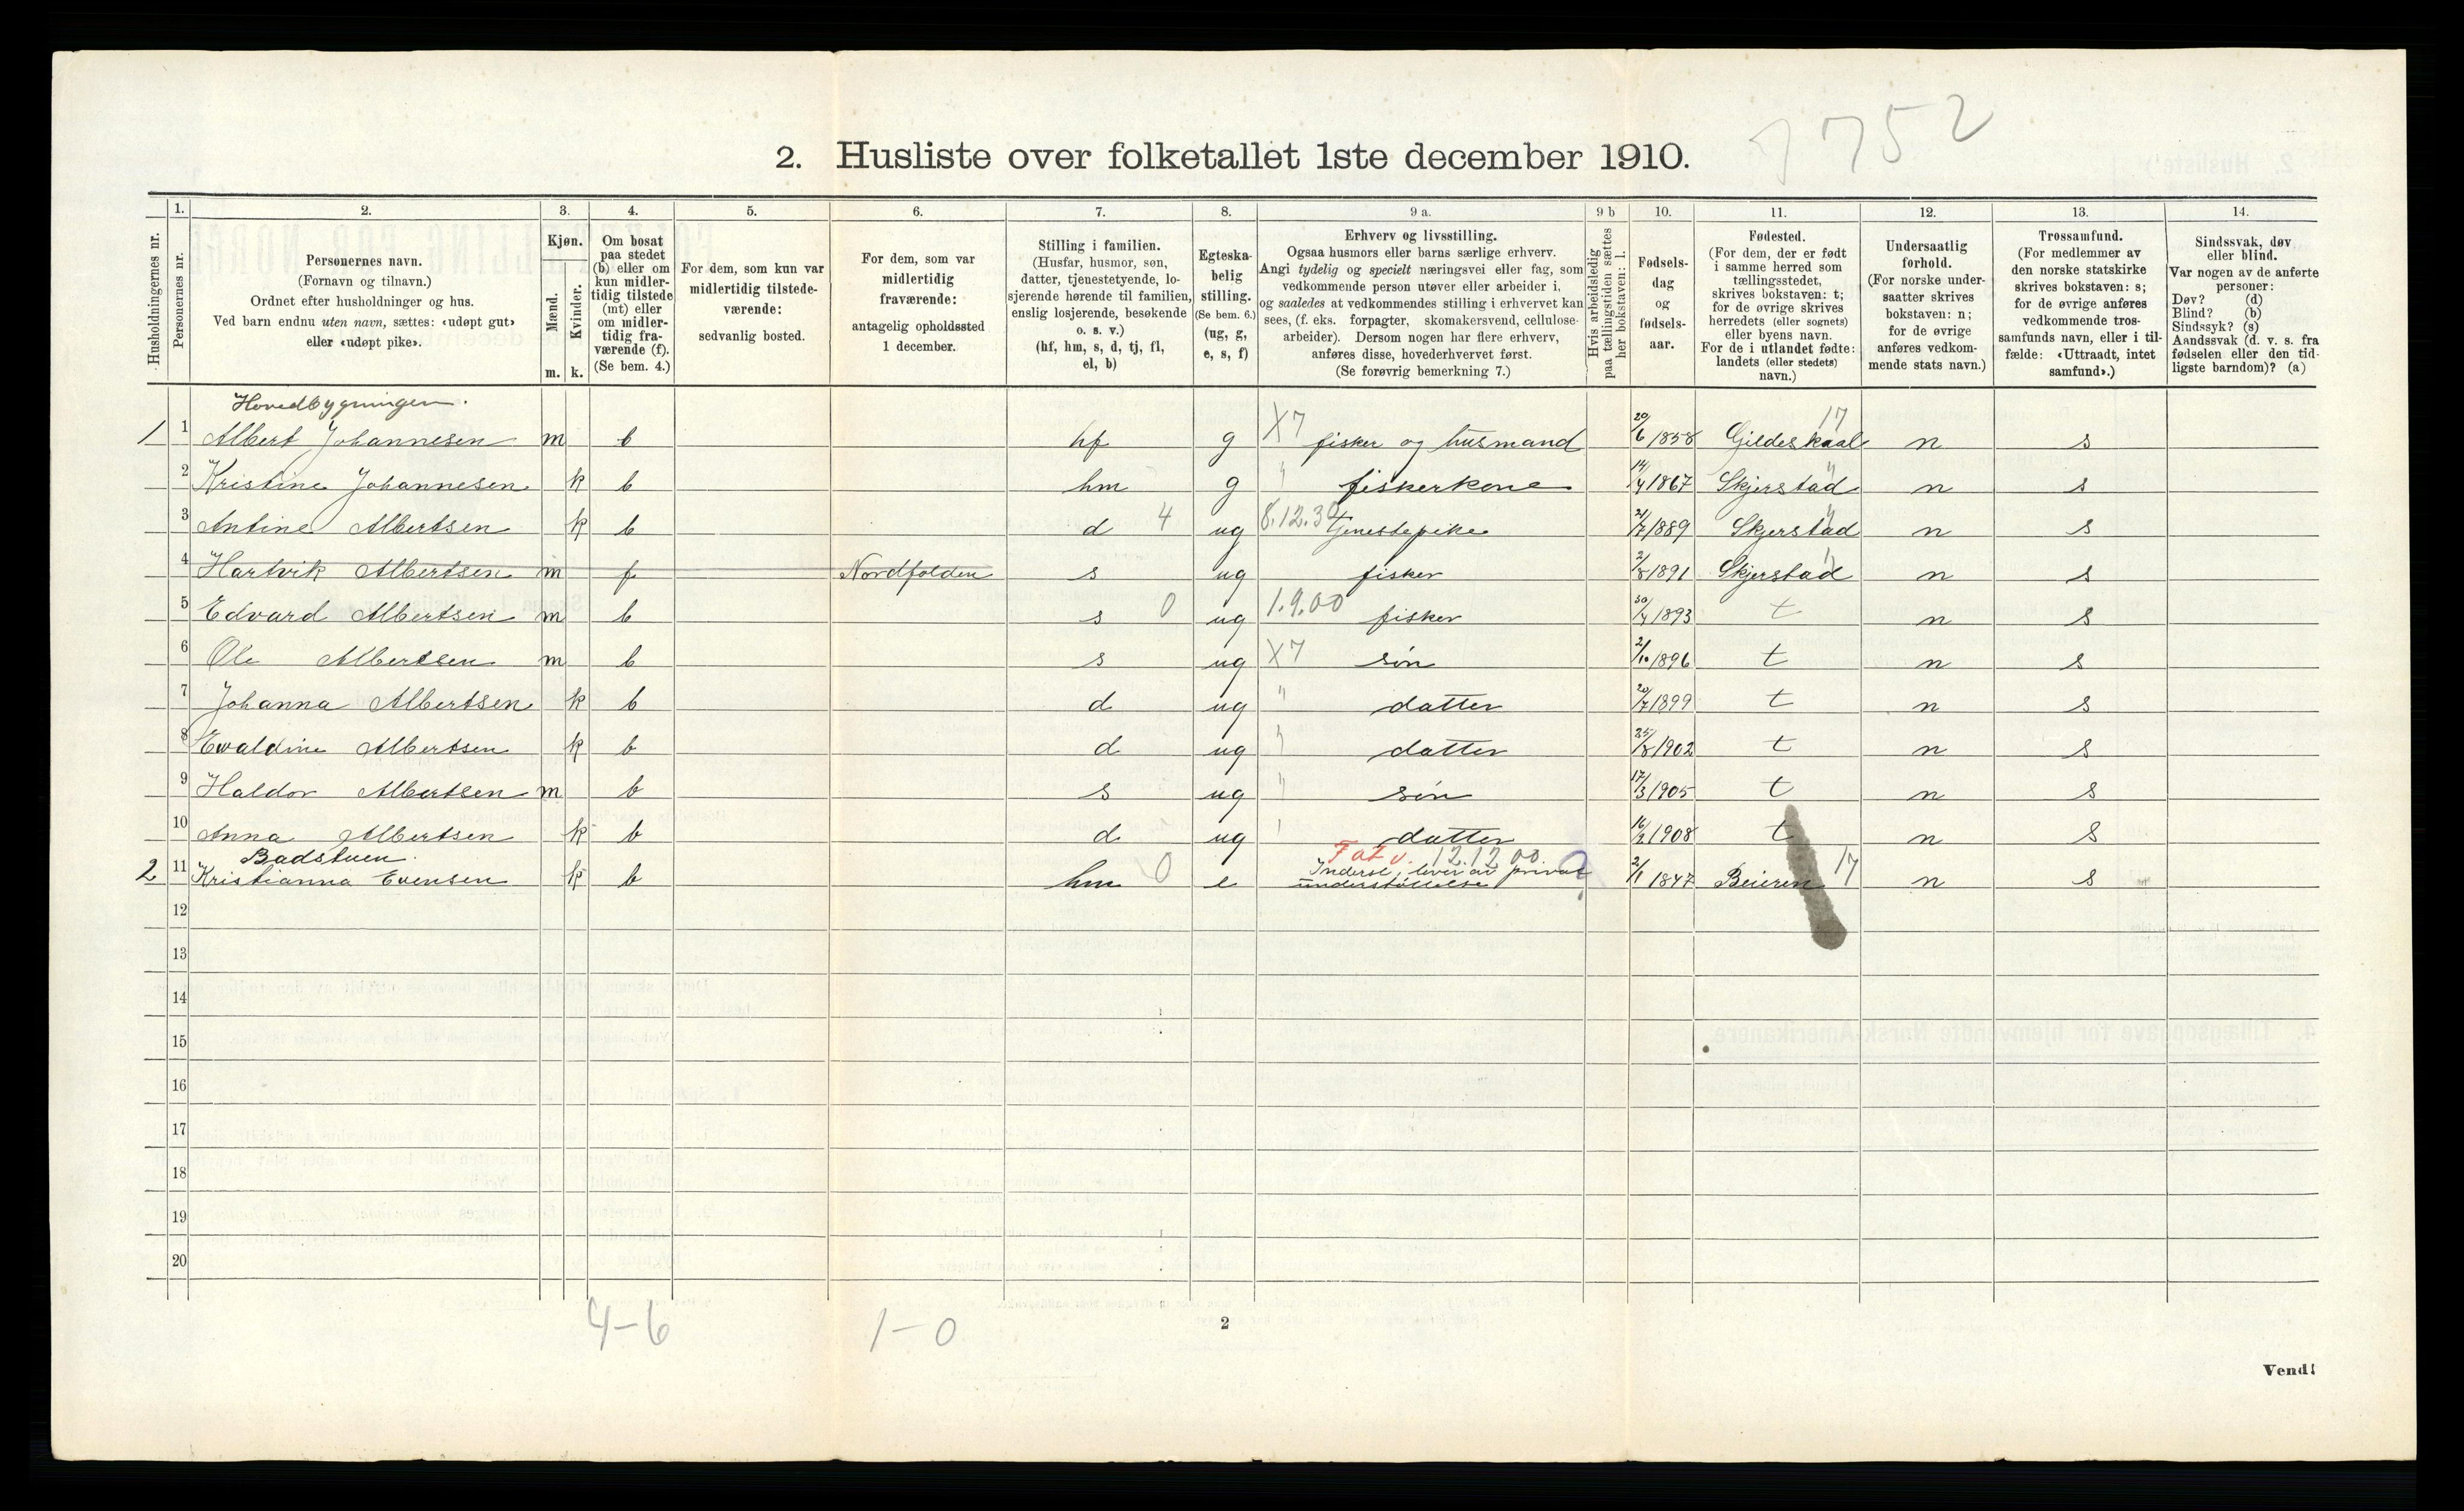 7752
2. Husliste over folketallet 1ste december 1910.
1. 2. 3. 4. 5. 6. 7. 8. 9 a. 9 b 10. 11. 12. 13. 14.
Husholdningernes nr.
Personernes nr.
Personernes navn.
(Fornavn og tilnavn.)
Ordnet efter husholdninger og hus.
Ved barn endnu uten navn, sættes: «udøpt gut»
eller «udøpt pike».
Kjøn.
Mænd.
Kvinder.
m. k.
Om bosat
paa stedet
(b) eller om
kun midler-
tidig tilstede
(mt) eller
om midler-
tidig fra-
værende (f).
(Se bem. 4.)
For dem, som kun var
midlertidig tilstede-
værende:
sedvanlig bosted.
For dem, som var
midlertidig
fraværende:
antagelig opholdssted
1 december.
Stilling i familien.
(Husfar, husmor, søn,
datter, tjenestetyende, lo-
sjerende hørende til familien,
enslig losjerende, besøkende
o. s. v.)
(hf, hm, s, d, tj, fl,
el, b)
Egteska-
belig
stilling.
(Se bem. 6.)
(ug, g,
e, s, f)
Erhverv og livsstilling.
Ogsaa husmors eller barns særlige erhverv.
Angi tydelig og specielt næringsvei eller fag, som
vedkommende person utøver eller arbeider i,
og saaledes at vedkommendes stilling i erhvervet kan
sees, (f. eks. forpagter, skomakersvend, cellulose-
arbeider). Dersom nogen har flere erhverv,
anføres disse, hovederhvervet først.
(Se forøvrig bemerkning 7.)
Hvis arbeidsledig
paa tællingstiden sættes
her bokstaven: l.
Fødsels-
dag
og
fødsels-
aar.
Fødested.
(For dem, der er født
i samme herred som
tællingsstedet,
skrives bokstaven: t;
for de øvrige skrives
herredets (eller sognets)
eller byens navn.
For de i utlandet fødte:
landets (eller stedets)
navn.)
Undersaatlig
forhold.
(For norske under-
saatter skrives
bokstaven: n;
for de øvrige
anføres vedkom-
mende stats navn.)
Trossamfund.
(For medlemmer av
den norske statskirke
skrives bokstaven: s;
for de øvrige anføres
vedkommende tros-
samfunds navn, eller i til-
fælde: «Uttraadt, intet
samfund».)
Sindssvak, døv
eller blind.
Var nogen av de anførte
personer:
Døv? (d)
Blind? (b)
Sindssyk? (s)
Aandssvak (d. v. s. fra
fødselen eller den tid-
ligste barndom)? (a)
Hovedbygningen.
1 1 Albert Johannesen m b hf g X7 fisker og husmand 20/6 1858 Gildeskaal 17 n s
2 Kristine Johannesen k b hm g " fiskerkone 14/4 1867 Skjerstad " n s
3 Antine Albertsen k b d 4 ug 8.12.30 tjenestepike 21/7 1889 Skjerstad " n s
4 Hartvik Albertsen m f Nordfolden s ug fisker 2/8 1891 Skjerstad " n s
5 Edvard Albertsen m b s 0 ug 1.9.00 fisker 30/4 1893 t n s
6 Ole Albertsen m b s ug X7 søn 2/10 1896 t n s
7 Johanna Albertsen k b d ug " datter 20/7 1899 t n s
8 Evaldine Albertsen k b d ug " datter 25/8 1902 t n s
9 Haldor Albertsen m b s ug " søn 17/3 1905 t n s
10 Anna Albertsen k b d ug " datter 16/2 1908 t n s
Badstuen.
Fat v. 12.12.00.
2 11 Kristianna Evensen k b hm 0 e Inderst, lever av privat 2/1 1847 Beieren 17 n s
understøttelse
12
13
14
15
16
17
18
19
20
4-6 1-0
2
Vend!